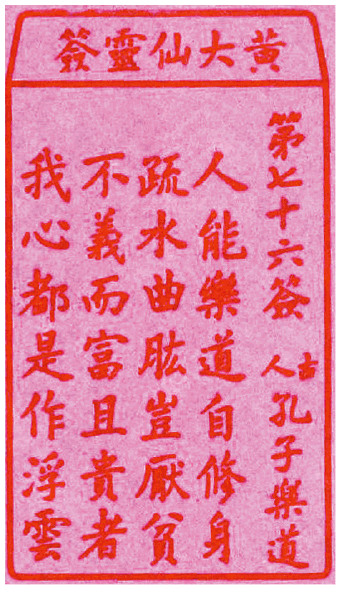 黃大仙靈簽
第七十六簽 古人 孔子樂道
人能樂道自修身
疏水曲肱豈厭貧
不義而富且貴者
我心都是作浮雲